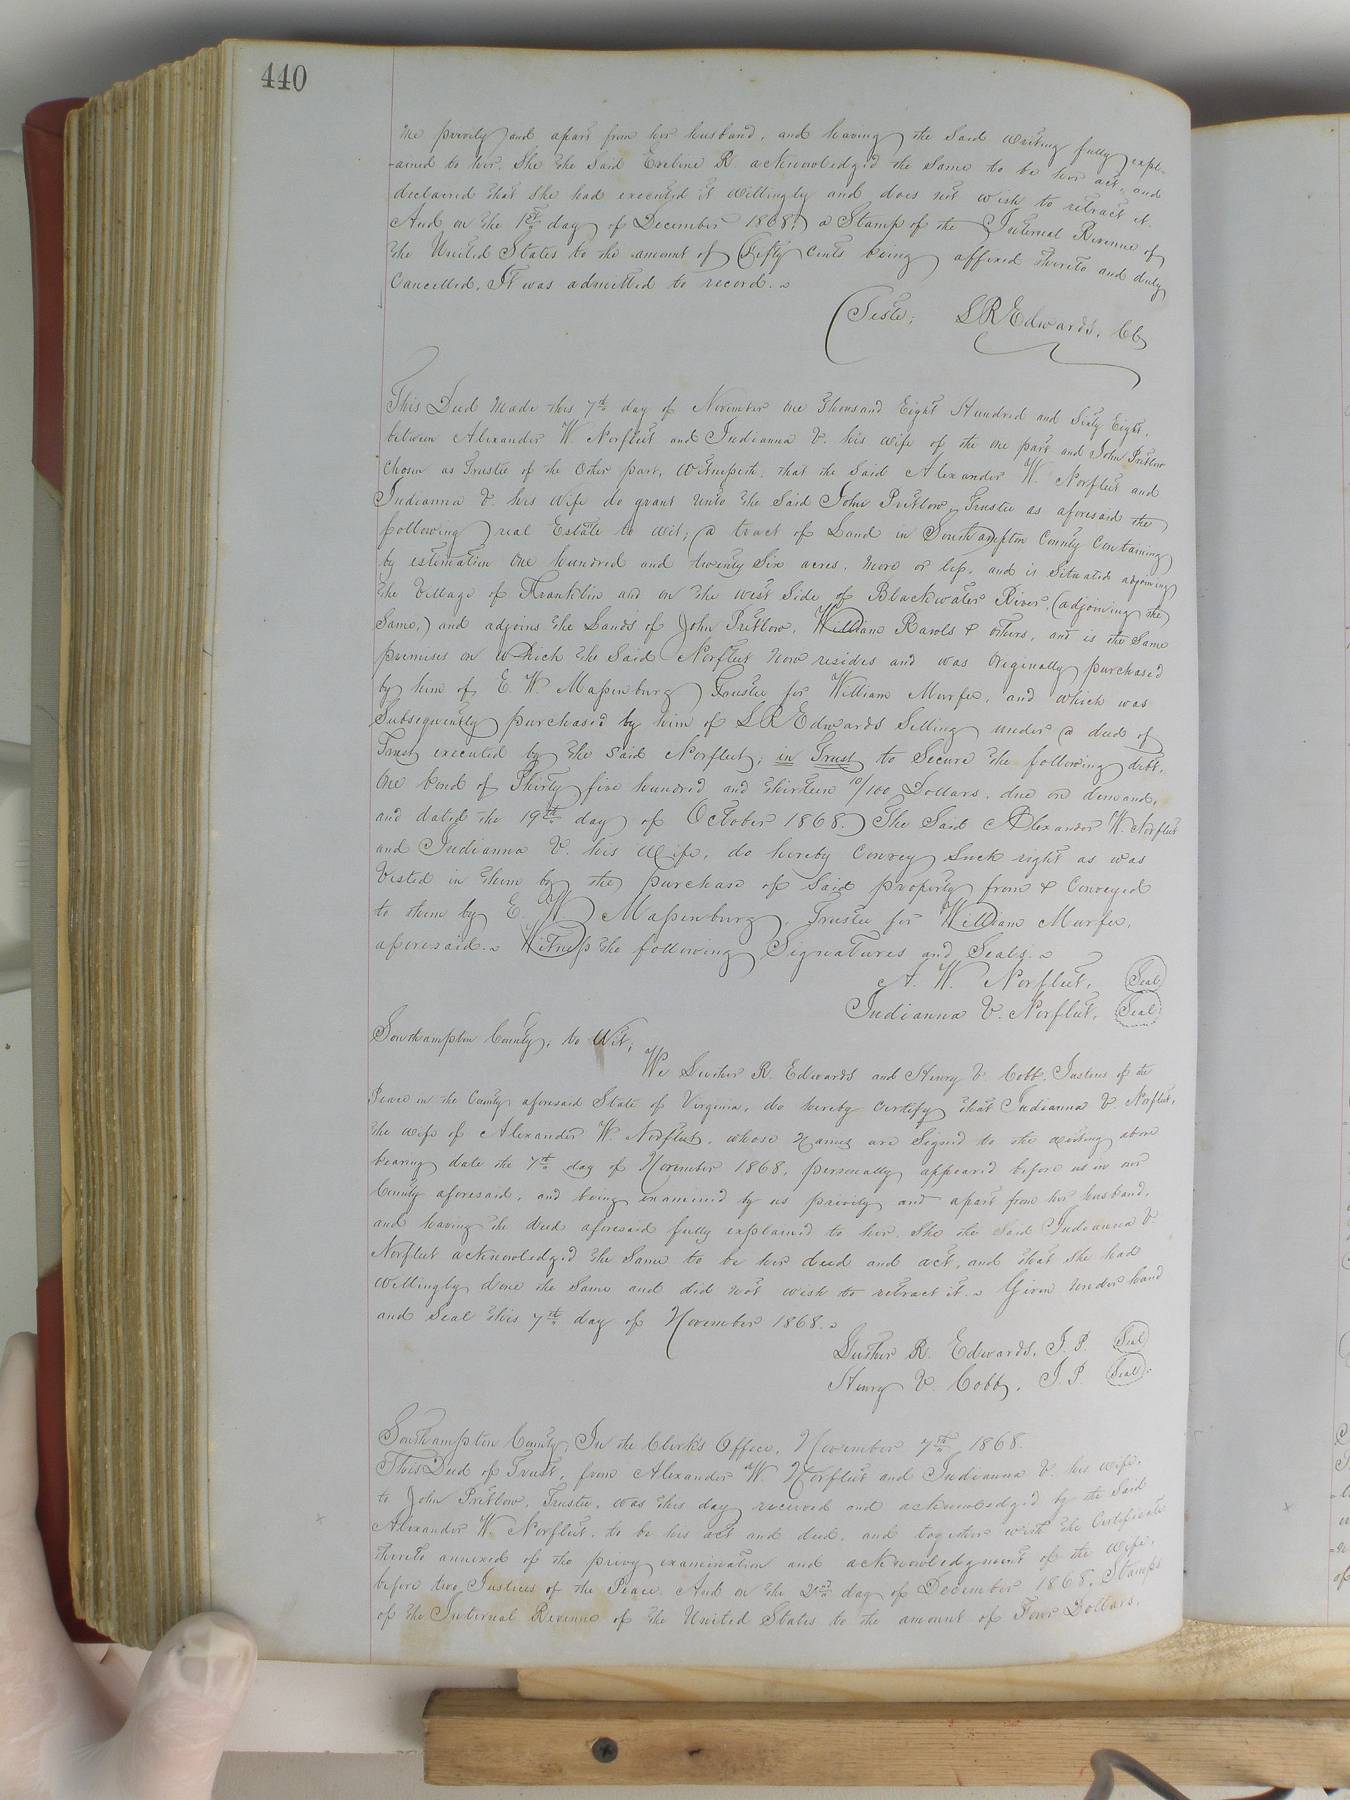 440
me privily and apart from her husband, and having the said writing fully expl-
-ained to her. She the said Eveline R acknowledged the same to be her act, and
declaired that she had executed it willingly and does not wish to retract it.
And on the 1st day of December 1868, a Stamp of the Internal Revenue of
the United States to the amount of Fifty cents being affixed thereto and duly
Cancelled, It was admitted to record.
Teste; L R Edwards, CC
This Deed Made this 7th day of November One Thousand Eight Hundred and Sixty Eight,
between Alexander W Norfleet and Indianna V. his wife of the one part and John Pretlow
Chosen as Trustee of the Other part, Witnesseth, that the said Alexander W. Norfleet and
Indianna V. his Wife do grant unto the Said John Pretlow, Trustee as aforesaid the
following real Estate to wit; a tract of Land in Southampton County Containing
by estimation One hundred and twenty Six acres, more or less, and is Situated adjoining
the Village of Franklin and on the west Side of Blackwater River, (adjoining the
Same,) and adjoins the Lands of John Pretlow, William Rawls & others, and is the Same
premises on which the Said Norfleet now resides and was Originally purchased
by him of E. W. Massenburg Trustee for William Murfee, and which was
Subsequently purchased by him of L R Edwards Selling under a deed of
Trust executed by the Said Norfleet; in Trust to Secure the following debt,
One bond of Thirty five hundred and thirteen 10/100 Dollars, due on demand,
and dated the 19th day of October 1868. The Said Alexander W. Norfleet
and Indianna V. his Wife, do hereby Convey Such right as was
Vested in them by the purchase of Said property from & Conveyed
to them by E. W Massenburg, Trustee for William Murfee,
aforesaid. Witness the following Signatures and Seals.
A. W. Norfleet, (Seal)
Indianna V. Norfleet, (Seal)
Southampton County, to Wit;
We Luther R. Edwards and Henry V. Cobb, Justices of the
Peace in the County aforesaid State of Virginia, do hereby Certify that Indianna V Norfleet,
the wife of Alexander W. Norfleet, whose Names are Signed to the writing above
bearing date the 7th day of November 1868, personally appeared before us in our
County aforesaid, and being examined by us privily and apart from her husband,
and having the deed aforesaid fully explained to her, She the Said Indianna V
Norfleet acknowledged the Same to be her deed and act, and that she had
willingly done the Same and did not wish to retract it. Given under hand
and Seal this 7th day of November 1868.
Luther R. Edwards, J. P. (Seal)
Henry V. Cobb, J. P. (Seal)
Southampton County, In the Clerk's Office, November 7th 1868.
This Deed of Trust, from Alexander W Norfleet and Indianna V. his wife,
to John Pretlow, Trustee, was this day received and acknowledged by the Said
Alexander W. Norfleet, to be his act and deed, and together with the Certificate
thereto annexed of the privy examination and acknowledgment of the wife,
before two Justices of the Peace. And on the 2nd day of December 1868, Stamps
of the Internal Revenue of the United States to the amount of Four Dollars,